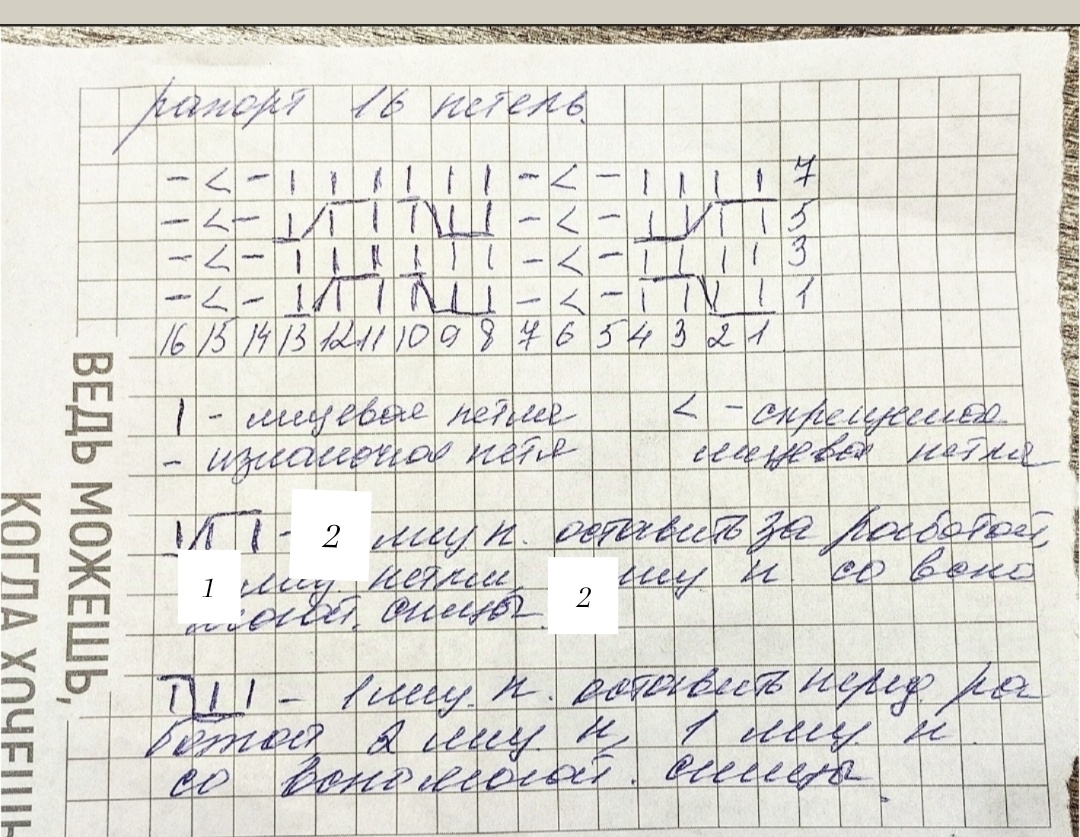 рапорт 16 петель.
- < - | | | | | | - < - | | | | 7
- < - | | | | | | - < - | | | | 5
- < - | | | | | | - < - | | | | 3
- < - | | | | | | - < - | | | | 1
16 15 14 13 12 11 10 9 8 7 6 5 4 3 2 1
| - лицевая петля < - скрещеная
- изнаночная петя лицевая петля
- 2 лиц н. оставить за работой,
1 лиц петли, 2 лиц н. со вспо
могат. спицы.
- 1 лиц. н. оставить перед ра
ботой 2 лиц н, 1 лиц н
со вспомогат. спицы.
ВЕДЬ МОЖЕШЬ,
КОГДА ХОЧЕШЬ